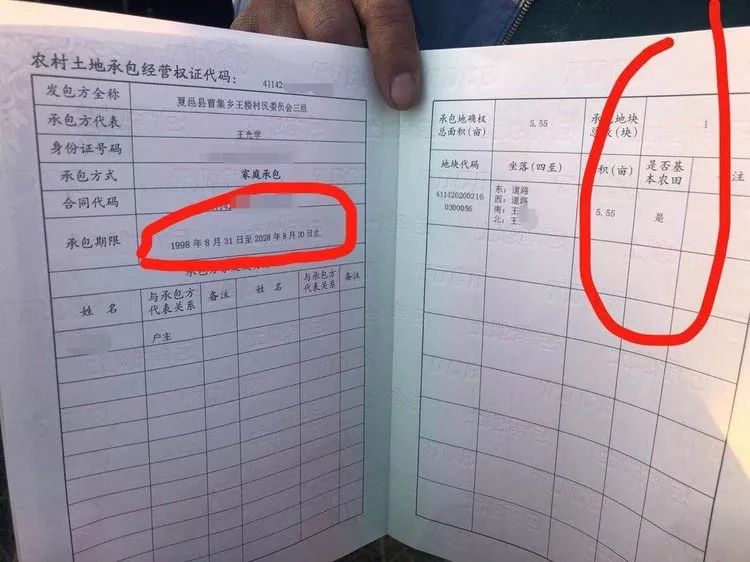 农村土地承包经营权证代码： 41142
发包方全称 夏邑县曹集乡王楼村民委员会三组
承包方代表 王光学
身份证号码
承包方式 家庭承包
合同代码
承包期限 1998 年 8 月 31 日至 2028 年 8 月 30 日止
姓 名 与承包方代表关系 备注 姓 名 与承包方代表关系 备注
户主
承包地确权总面积(亩) 5.55 承包地块总数(块) 1
地块代码 坐落(四至) 积(亩) 是否基本农田 备注
4114262002160300056 东：道路 5.55 是
西：道路
南：王
北：王